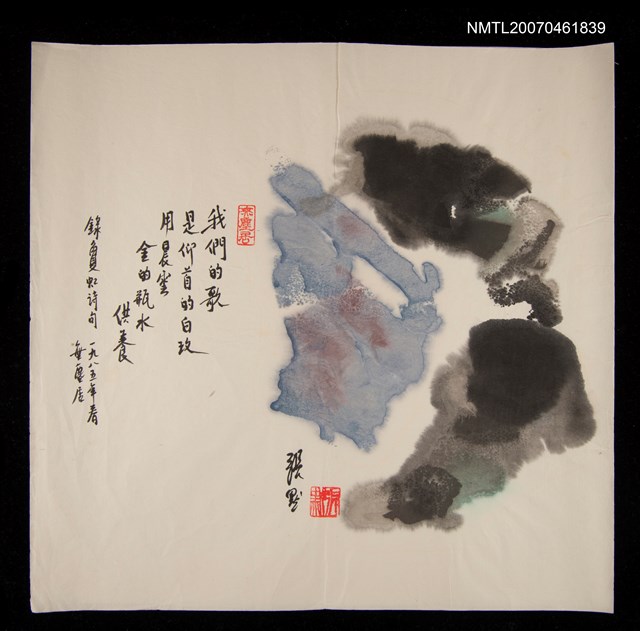 NMTL20070461839
我們的歌
是仰首的白玫
用晨雲
金的瓶水
供養
錄敻虹诗句 一九八五年春
張默